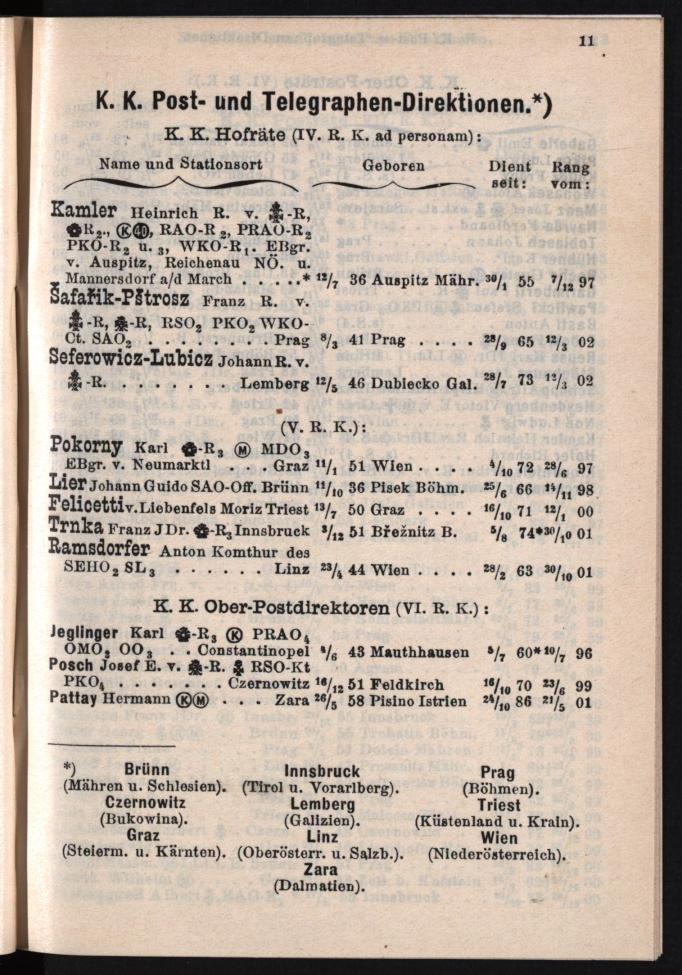 11
K. K. Post- und Telegraphen-Direktionen.*)
K. K. Hofräte (IV. R. K. ad personam):
Name und Stationsort Geboren Dient Rang
seit: vom:
Kamler Heinrich R. v. -R,
R₂., Ⓚ㊵, RAO-R₂, PRAO-R₂
PKO-R₂ u. ₃, WKO-R₁. EBgr.
v. Auspitz, Reichenau NÖ. u.
Mannersdorf a/d March . . . . .* 12/7 36 Auspitz Mähr. 30/1 55 7/12 97
Šafařik-Pštrosz Franz R. v.
-R, -R, RSO₂ PKO₂ WKO-
Ct. SAO₂ . . . . . . . . Prag 8/3 41 Prag . . . . 28/9 65 12/3 02
Seferowicz-Lubicz Johann R. v.
-R. . . . . . . . . Lemberg 12/5 46 Dubiecko Gal. 28/7 73 12/3 02
(V. R. K.):
Pokorny Karl -R₃ Ⓜ MDO₃
EBgr. v. Neumarktl . . . Graz 11/1 51 Wien . . . . 4/10 72 28/6 97
Lier Johann Guido SAO-Off. Brünn 11/10 36 Pisek Böhm. 25/6 66 14/11 98
Felicetti v. Liebenfels Moriz Triest 13/7 50 Graz . . . . 16/10 71 12/1 00
Trnka Franz JDr. -R₃ Innsbruck 3/12 51 Břežnitz B. 5/8 74*30/10 01
Ramsdorfer Anton Komthur des
SEHO₂ SL₃ . . . . . . Linz 23/4 44 Wien . . . . 28/2 63 30/10 01
K. K. Ober-Postdirektoren (VI. R. K.):
Jeglinger Karl -R₃ Ⓚ PRAO₄
OMO₃ OO₃ . . Constantinopel 4/6 43 Mauthhausen 5/7 60*10/7 96
Posch Josef E. v. -R. RSO-Kt
PKO₄ . . . . . . . Czernowitz 16/12 51 Feldkirch 16/10 70 23/6 99
Pattay Hermann ⓀⓂ . . . Zara 26/5 58 Pisino Istrien 24/10 86 21/5 01
*) Brünn Innsbruck Prag
(Mähren u. Schlesien). (Tirol u. Vorarlberg). (Böhmen).
Czernowitz Lemberg Triest
(Bukowina). (Galizien). (Küstenland u. Krain).
Graz Linz Wien
(Steierm. u. Kärnten). (Oberösterr. u. Salzb.). (Niederösterreich).
Zara
(Dalmatien).